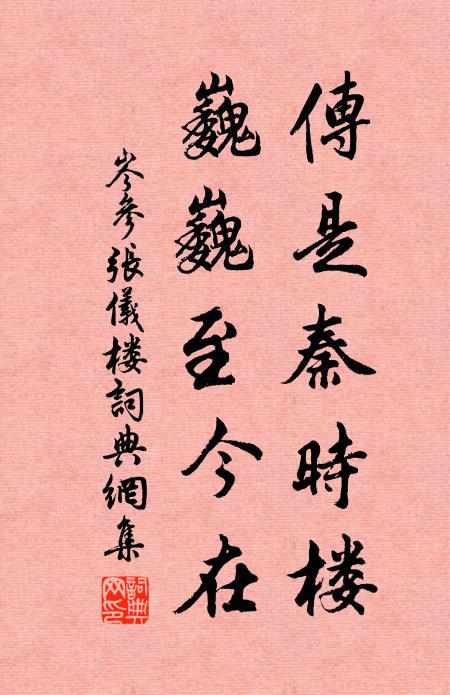 傳是秦時楼
巍巍至今在
岑參張儀楼詞典網集
詞典網印